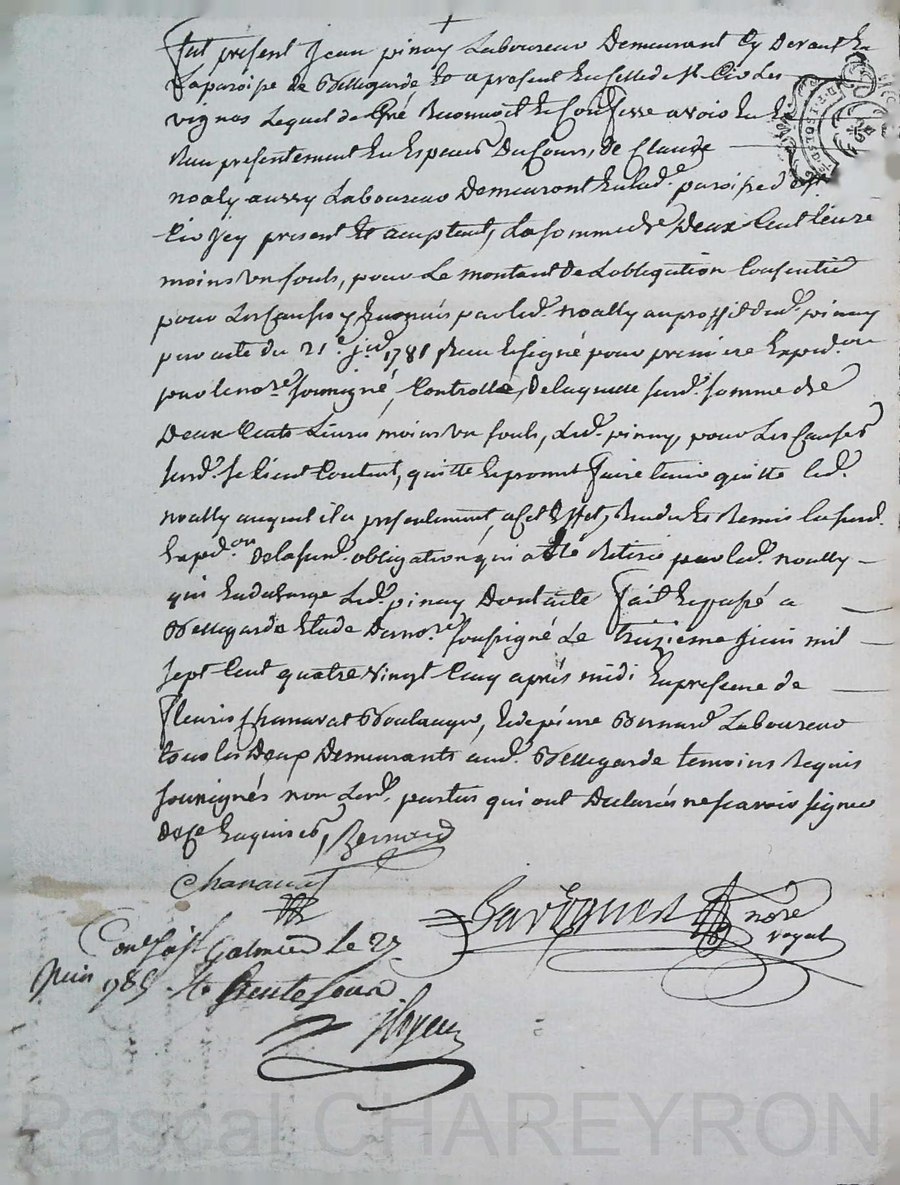 fut present Jean pinay Laboureur Demeurant Cy Devant En
La paroisse de Bellegarde Et a present En celle de St Cir Les
vignes Lequel de Gré Reconnoit Et Confesse avoir Eu Et
Reçu presentement En Especes Du Cours, de Claude
noaly aussy Laboureur Demeurant En lad.e paroisse de St
Cir Jcy present Et acceptant, La somme de Deux Cent livres
moins un souls, pour Le montant de Lobligation Consentie
pour Les Causes y Enoncées par led. noally au proffit dud. pinay
par acte du 21.e 1781 pour premiere Exped.on
par le no.re soussigné, Controllé, De laquelle susd. somme de
Deux Cents Livres moins un souls, Led. pinay, pour Les Causes
susd. se tient Content, quitte Et promet faire tenir quitte led.
noally auquel il a presentement, a Cet Effet, Rendu Et Remis la susd.
Exped.on De la susd. obligation qui a Eté Retirée par led. noally
qui En decharge Led. pinay Dont acte fait Et passé a
Bellegarde Etude Du no.re soussigné Le treizieme Juin mil
sept Cent quatre vingt Cinq aprés midi En presence de
fleuris Chanavat Boulanger, Et de pierre Bernard Laboureur
tous les Deux Demeurants aud. Bellegarde temoins Requis
soussignés non Lesd. parties qui ont Declarés ne scavoir signer
De ce Enquises, Bernard
Chanavat
no.re
royal
Con.lé à St Galmier Le 27
Juin 1785 R. trente sous
Pascal CHAREYRON